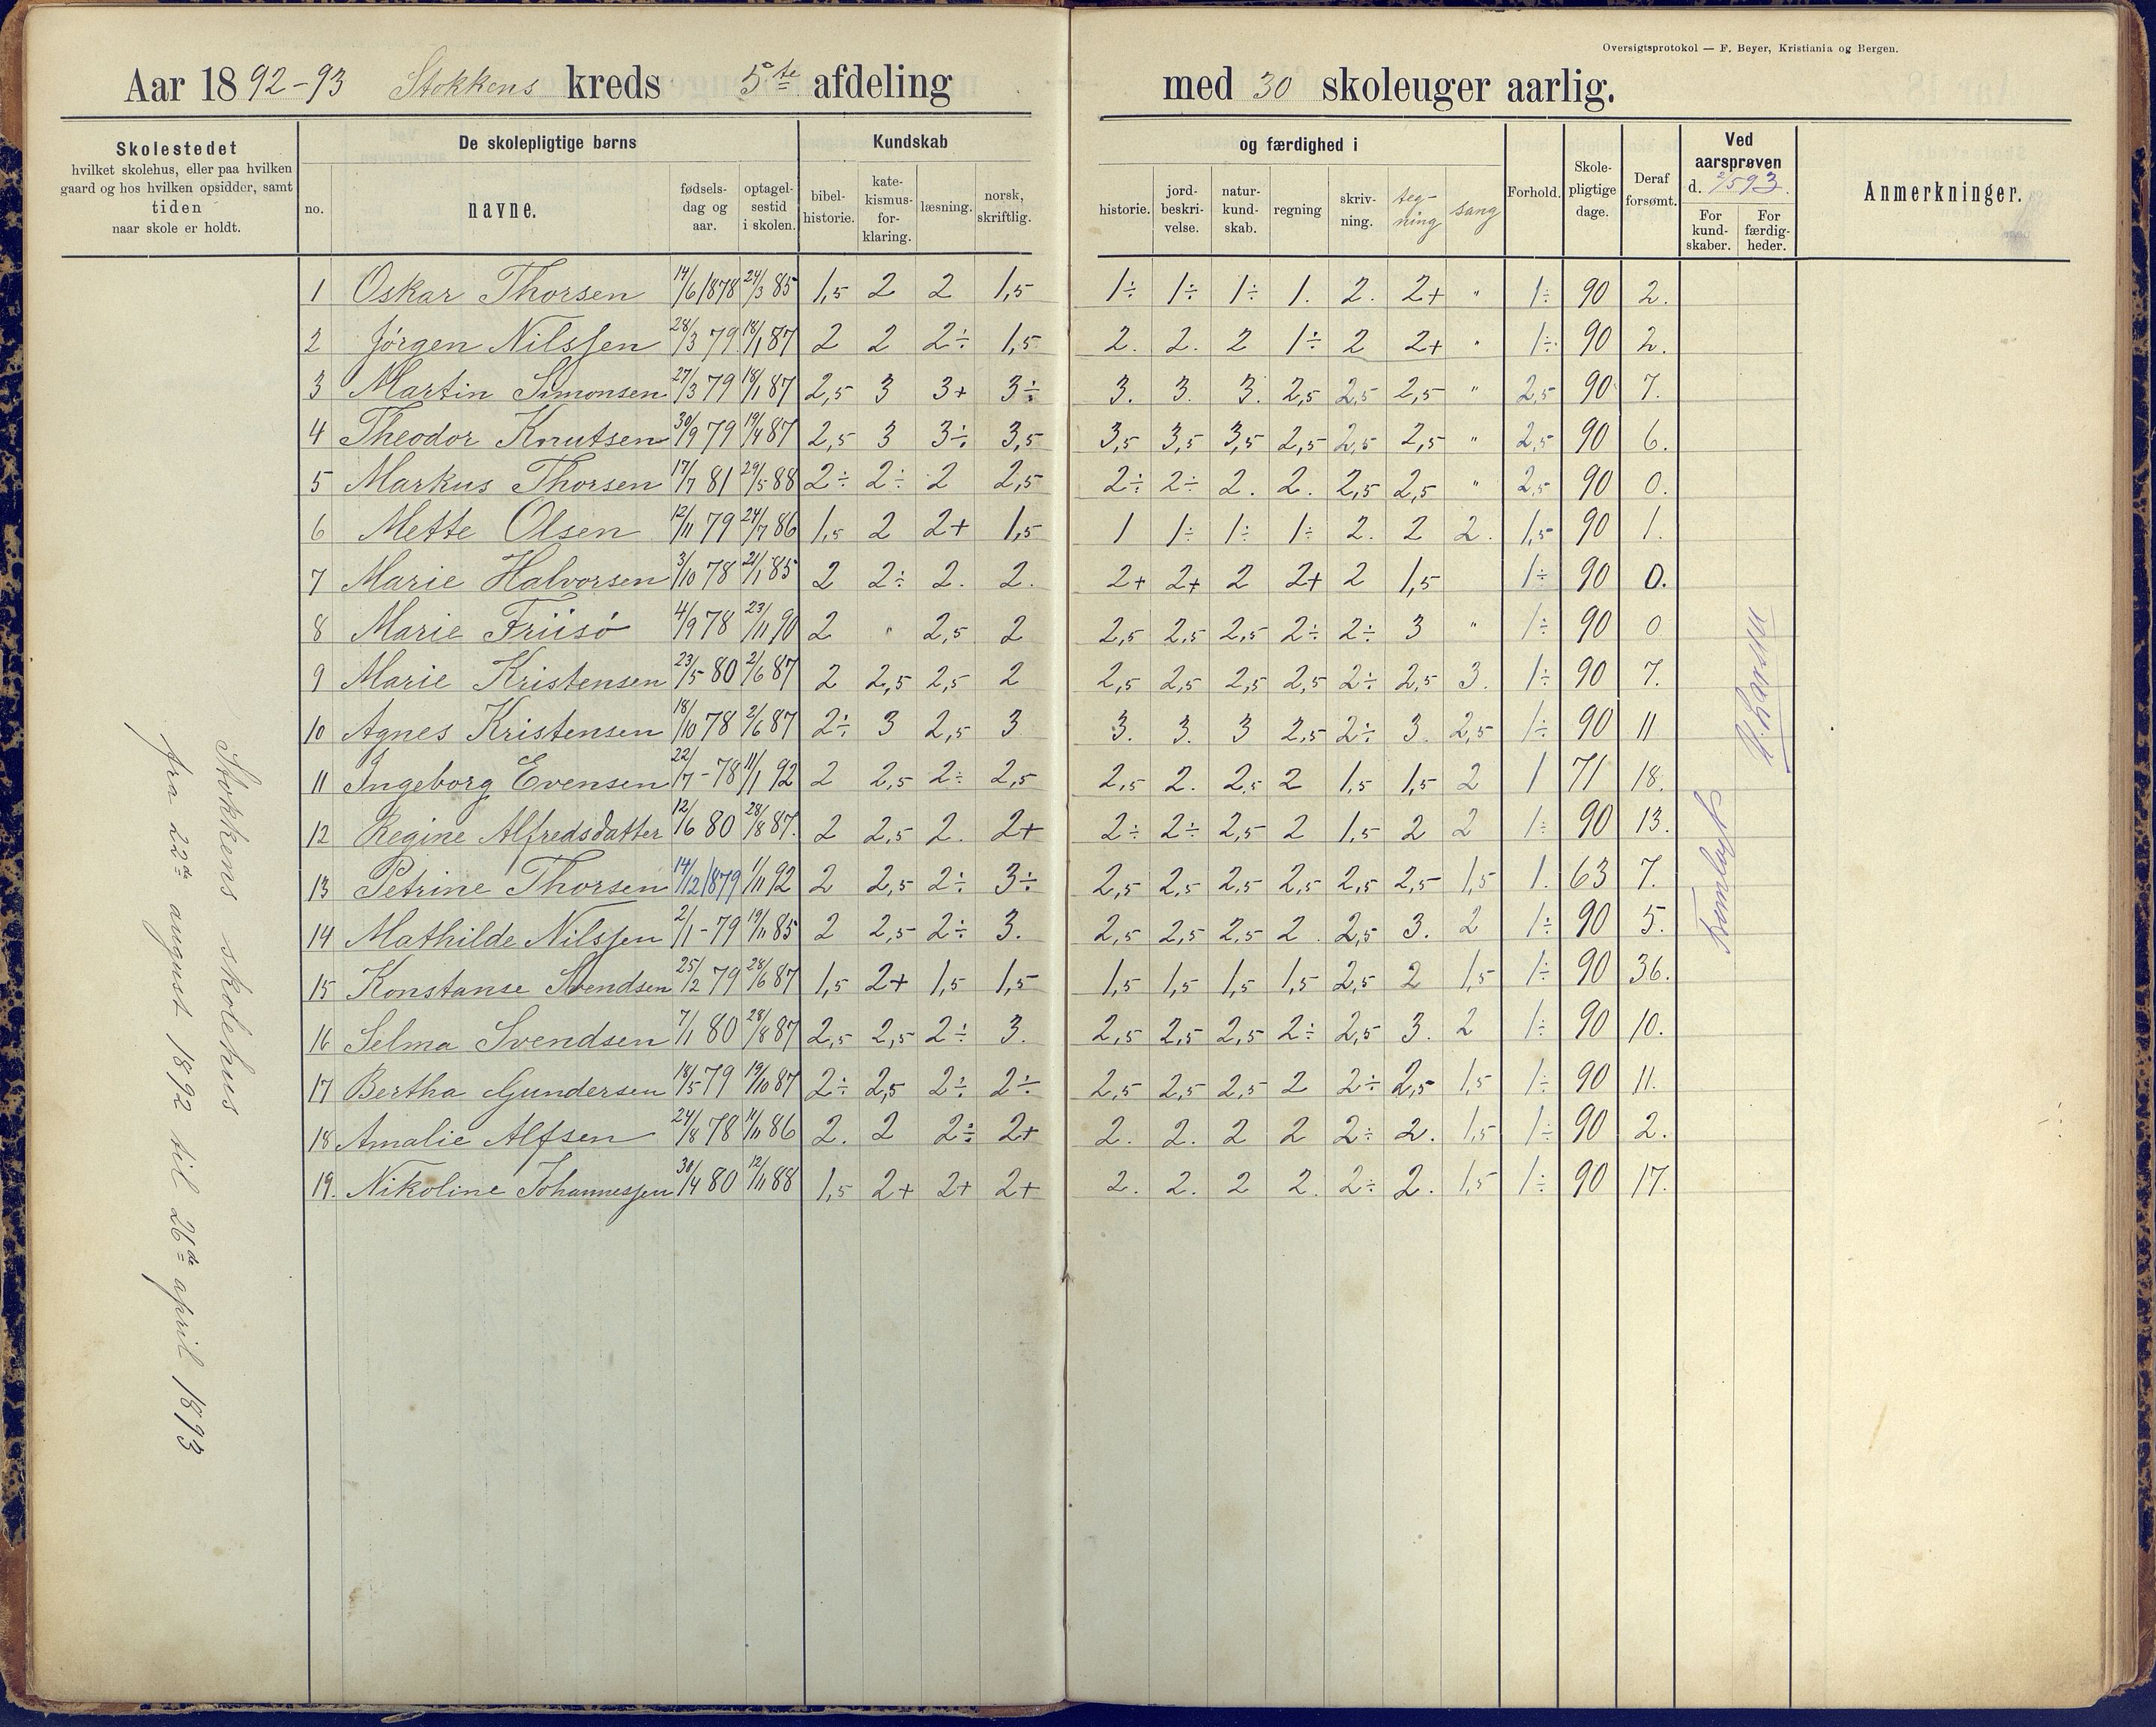 Oversigtsprotokol — F. Beyer, Kristiania og Bergen.
Aar 1892-93 Stokkens kreds 5te afdeling med 30 skoleuger aarlig.
Skolestedet
hvilket skolehus, eller paa hvilken
gaard og hos hvilken opsidder, samt
tiden
naar skole er holdt.
De skolepligtige børns
no.
navne.
fødsels-
dag og
aar.
optagel-
sestid
i skolen.
Kundskab
bibel-
historie.
kate-
kismus-
for-
klaring.
læsning.
norsk,
skriftlig.
og færdighed i
historie.
jord-
beskri-
velse.
natur-
kund-
skab.
regning
skriv-
ning.
teg-
ning
sang
Forhold.
Skole-
pligtige
dage.
Deraf
forsømt.
Ved
aarsprøven
d. 2/5 93.
For
kund-
skaber.
For
færdig-
heder.
Anmerkninger.
1 Oskar Thorsen 14/6 1878 24/3 85 1,5 2 2 1,5 1÷ 1÷ 1÷ 1. 2. 2+ " 1÷ 90 2.
2 Jørgen Nilssen 28/3 79 18/1 87 2 2 2÷ 1,5 2. 2. 2 1÷ 2 2+ " 1÷ 90 2.
3 Martin Simonsen 27/3 79 18/1 87 2,5 3 3+ 3÷ 3. 3. 3. 2,5 2,5 2,5 " 2,5 90 7.
4 Theodor Knutsen 30/9 79 19/4 87 2,5 3 3÷ 3,5 3,5 3,5 3,5 2,5 2,5 2,5 " 2,5 90 6.
5 Markus Thorsen 17/7 81 29/5 88 2÷ 2÷ 2 2,5 2÷ 2÷ 2. 2. 2,5 2,5 " 2,5 90 0.
6 Mette Olsen 12/11 79 24/7 86 1,5 2 2+ 1,5 1 1÷ 1÷ 1÷ 2. 2 2. 1,5 90 1.
7 Marie Halvorsen 3/10 78 21/1 85 2 2÷ 2. 2. 2+ 2+ 2 2+ 2 1,5 1÷ 90 0.
8 Marie Friisø 4/9 78 23/11 90 2 " 2,5 2 2,5 2,5 2,5 2÷ 2÷ 3 " 1÷ 90 0
9 Marie Kristensen 23/5 80 2/6 87 2 2,5 2,5 2 2,5 2,5 2,5 2,5 2÷ 2,5 3. 1÷ 90 7.
10 Agnes Kristensen 18/10 78 2/6 87 2÷ 3 2,5 3 3. 3. 3 2,5 2÷ 3. 2,5 1÷ 90 11
11 Ingeborg Evensen 22/7-78 11/1 92 2 2,5 2÷ 2,5 2,5 2. 2,5 2 1,5 1,5 2 1 71 18.
12 Regine Alfredsdatter 12/6 80 28/8 87. 2 2,5 2. 2+ 2÷ 2÷ 2,5 2 1,5 2 2 1÷ 90 13.
13 Petrine Thorsen 14/12 1879 1/11 92 2 2,5 2÷ 3÷ 2,5 2,5 2,5 2,5 2,5 2,5 1,5 1. 63 7.
14 Mathilde Nilssen 2/1-79 19/11 85 2 2,5 2÷ 3. 2,5 2,5 2,5 2. 2,5 3. 2 1÷ 90 5.
15 Konstanse Svendsen 25/2 79 28/6 87 1,5 2+ 1,5 1,5 1,5 1,5 1,5 1,5 2,5 2 1,5 1÷ 90 36.
16 Selma Svendsen 7/1 80 28/8 87 2,5 2,5 2÷ 3. 2,5 2,5 2,5 2÷ 2,5 3. 2 1÷ 90 10.
17 Bertha Gundersen 18/5 79 19/10 87 2÷ 2,5 2÷ 2÷ 2,5 2,5 2,5 2 2÷ 2,5 1,5 1÷ 90 11.
18 Amalie Alfsen 24/8 78 11/11 86 2. 2 2÷ 2+ 2. 2. 2 2 2÷ 2. 1,5 1÷ 90 2.
19. Nikoline Johannessen 30/4 80 12/11 88 1,5 2+ 2+ 2+ 2. 2. 2 2. 2÷ 2. 1,5 1÷ 90 17.
Stokkens skolehus
fra 22de august 1892 til 26de april 1893